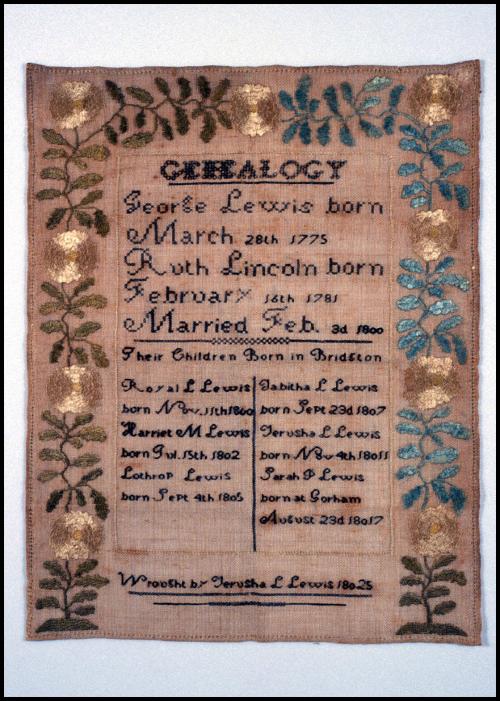 GENEALOGY
George Lewis born
March 28th 1775
Ruth Lincoln born
February 16th 1781
Married Feb. 3d 1800
Their Children Born in Bridgton
Royal L Lewis
born Nov. 11th 1800
Harriet M Lewis
born Jul. 15th 1802
Lothrop Lewis
born Sept 4th 1805
Tabitha L Lewis
born Sept 23d 1807
Jerusha L Lewis
born Nov 4th 18011
Sarah P Lewis
born at Gorham
August 23d 18017
Wrought by Jerusha L Lewis 18025